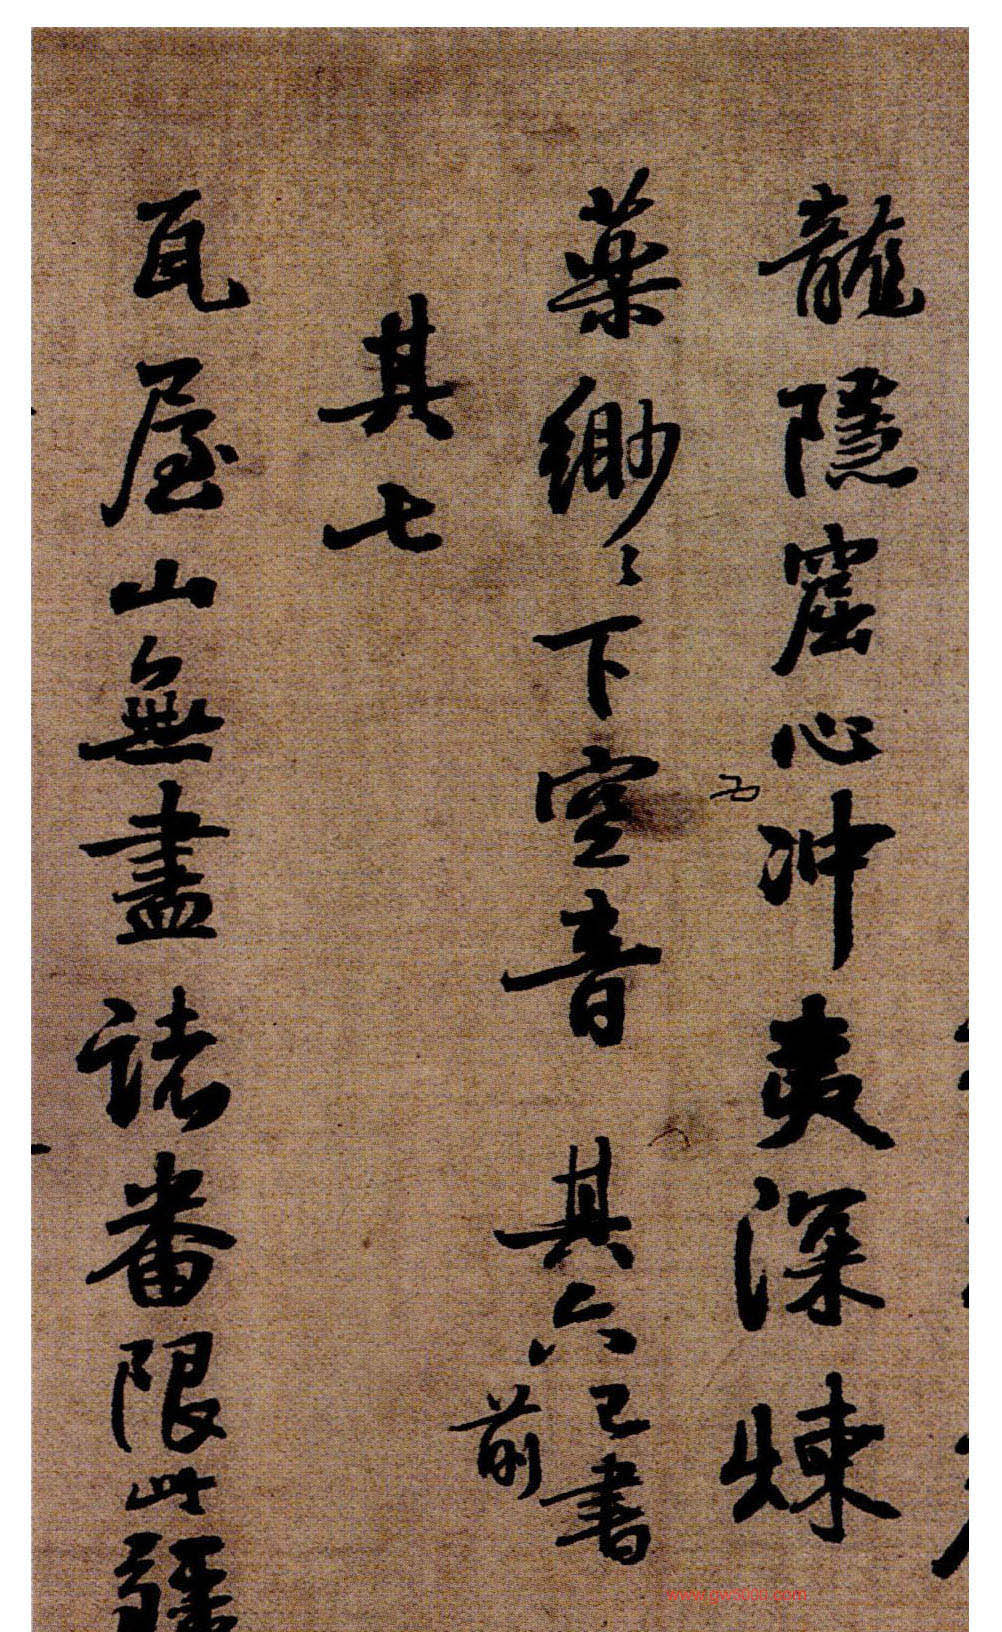 龍隱窟心冲爽深煉
藥緲〻下空音 其六已書
前
其七
瓦屋山無盡諸番限此疆
www.gw5000.com